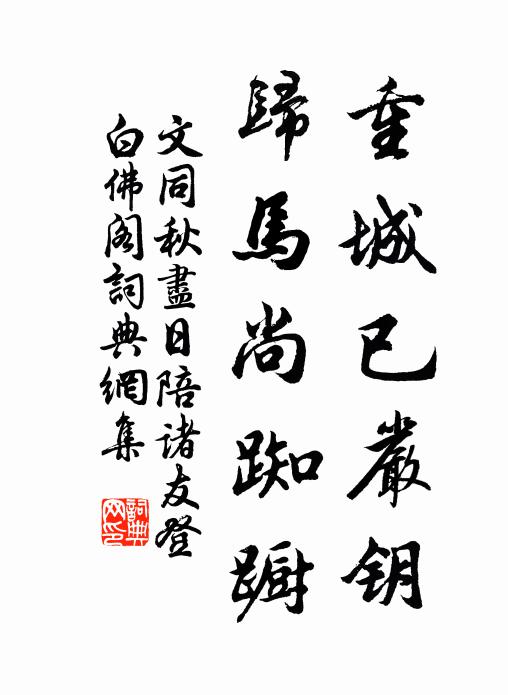 重城已嚴鑰
歸馬尚踟躕
文同秋盡日陪諸友登
白佛阁詞典網集
詞典
网印